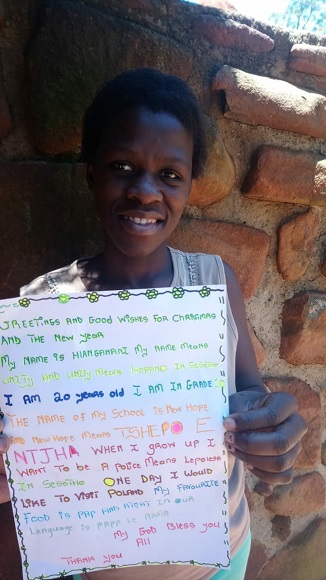 GREETINGS AND GOOD WISHES FOR CHRISTMAS
AND THE NEW YEAR
MY NAME IS HLANGANANI MY NAME MEANS
UNITY AND UNITY MEANS IN SESOTHO
I AM 20 years old I AM IN GRADE
THE NAME OF MY SCHOOL IS NEW HOPE
AND NEW HOPE MEANS TSHEPO E
NTJHA WHEN I GROW UP I
WANT TO BE A POLICE MEANS LEPOLESA
IN SESOTHO ONE DAY I WOULD
LIKE TO VISIT POLAND MY FAVOURITE
FOOD IS PAP AND MEAT IN OUR
LANGUAGE IS PAPA LE NAMA
MY GOD BLESS YOU
All
THANK YOU